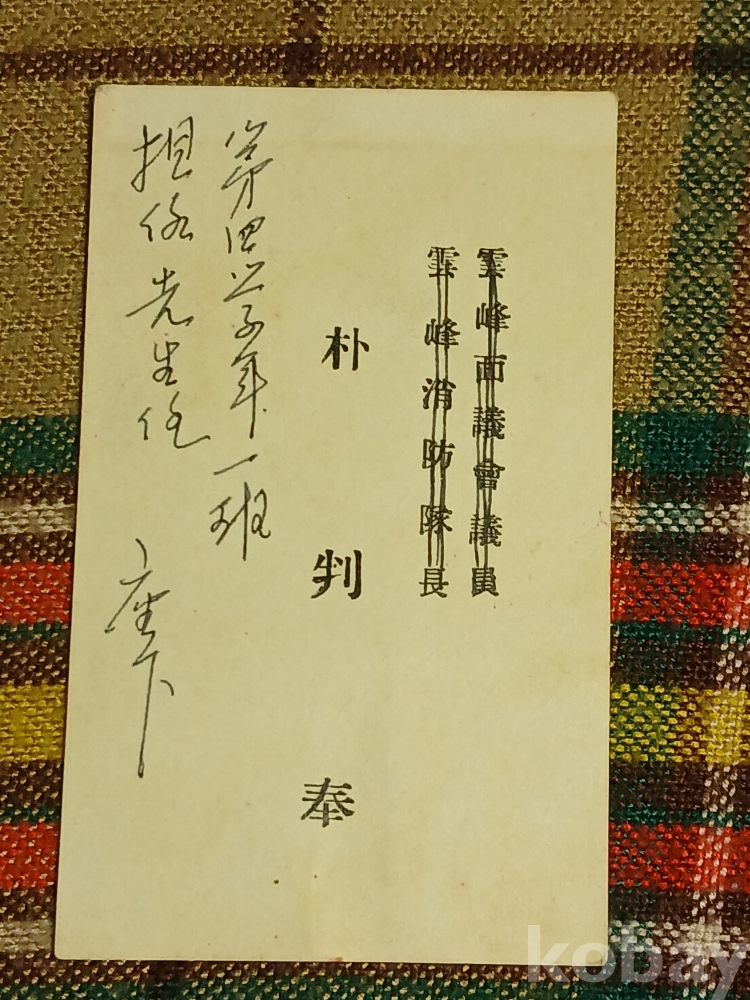 雲峰面議會議員
雲峰消防隊長
朴判奉
第四学年一班
担任先生任
座下
kobay